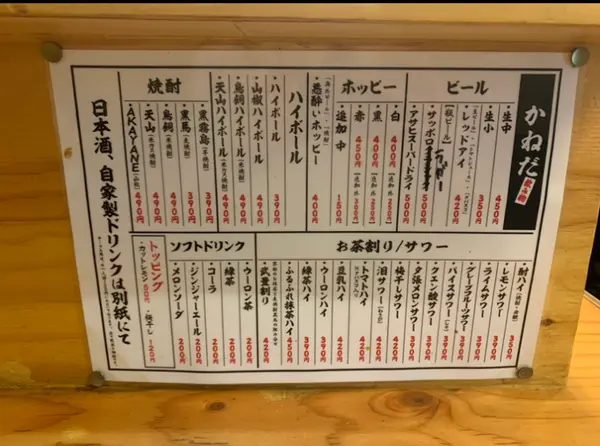 かねだ
ビール
・生中 450円
・生小 350円
・レッドアイ 420円
【瓶ビール】
サッポロ 500円
アサヒスーパードライ 500円
ホッピー
・白 400円
・黒 400円
・赤 450円
・追加 中 150円
・悪酔いホッピー 400円
ハイボール
・ハイボール 390円
・山椒ハイボール 490円
・鳥飼ハイボール 490円
・天山ハイボール 490円
焼酎
・黒霧島 390円
・黒馬 490円
・鳥飼 490円
・天山 490円
・AKAYANE 490円
日本酒、自家製ドリンクは別紙にて
お茶割り/サワー
・酎ハイ 350円
・レモンサワー 390円
・ライムサワー 390円
・グレープフルーツサワー 390円
・バイスサワー 390円
・クエン酸サワー 390円
・夕張メロンサワー 390円
・梅干しサワー 420円
・泪サワー 420円
・トマトハイ 420円
・豆乳ハイ 420円
・ウーロンハイ 390円
・緑茶ハイ 390円
・ふるふれ抹茶ハイ 450円
・武重割り 420円
ソフトドリンク
・ウーロン茶 200円
・緑茶 200円
・コーラ 200円
・ジンジャーエール 200円
・メロンソーダ 200円
トッピング
・カットレモン 50円
・梅干し 120円